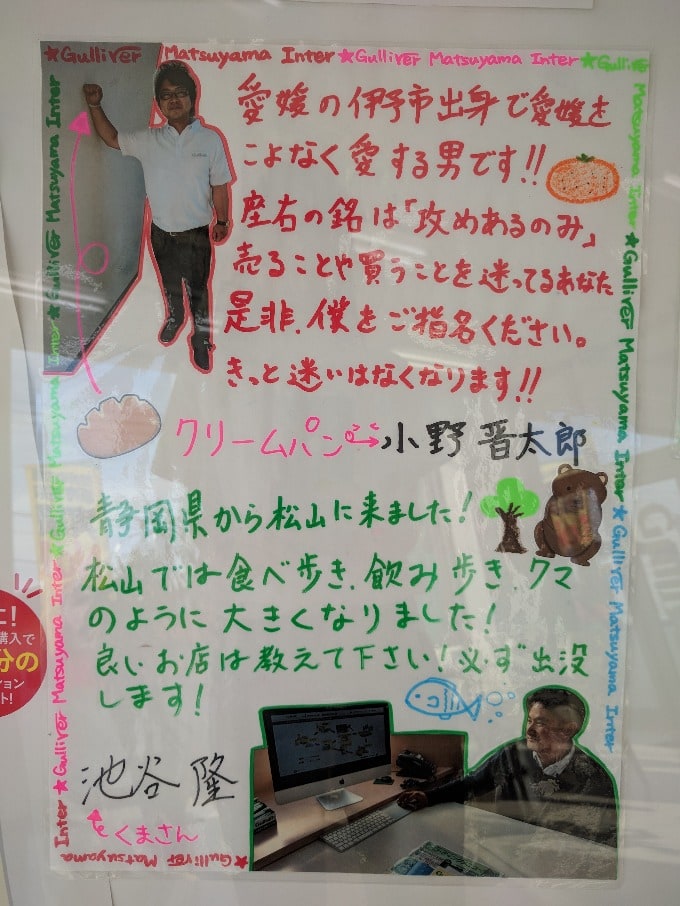 ★Gulliver Matsuyama Inter ★Gulliver Matsuyama Inter ★Gulliver
Matsuyama Inter ★Gulliver Matsuyama Inter ★Gulliver Matsuyama Inter
愛媛の伊予市出身で愛媛を
こよなく愛する男です!!
座右の銘は「攻めあるのみ」
売ることや買うことを迷ってるあなた
是非、僕をご指名ください。
きっと迷いはなくなります!!
クリームパン
小野 晋太郎
静岡県から松山に来ました!
松山では食べ歩き、飲み歩き、クマ
のように大きくなりました!
良いお店は教えて下さい!必ず出没
します!
池谷 隆
くまさん
★Gulliver Matsuyama Inter ★Gulliver Matsuyama Inter ★Gulliver Matsuyama Inter ★Gulliver Matsuyama Inter
★Gulliver Matsuyama
Inter
に!
購入で
分の
ション
ト!